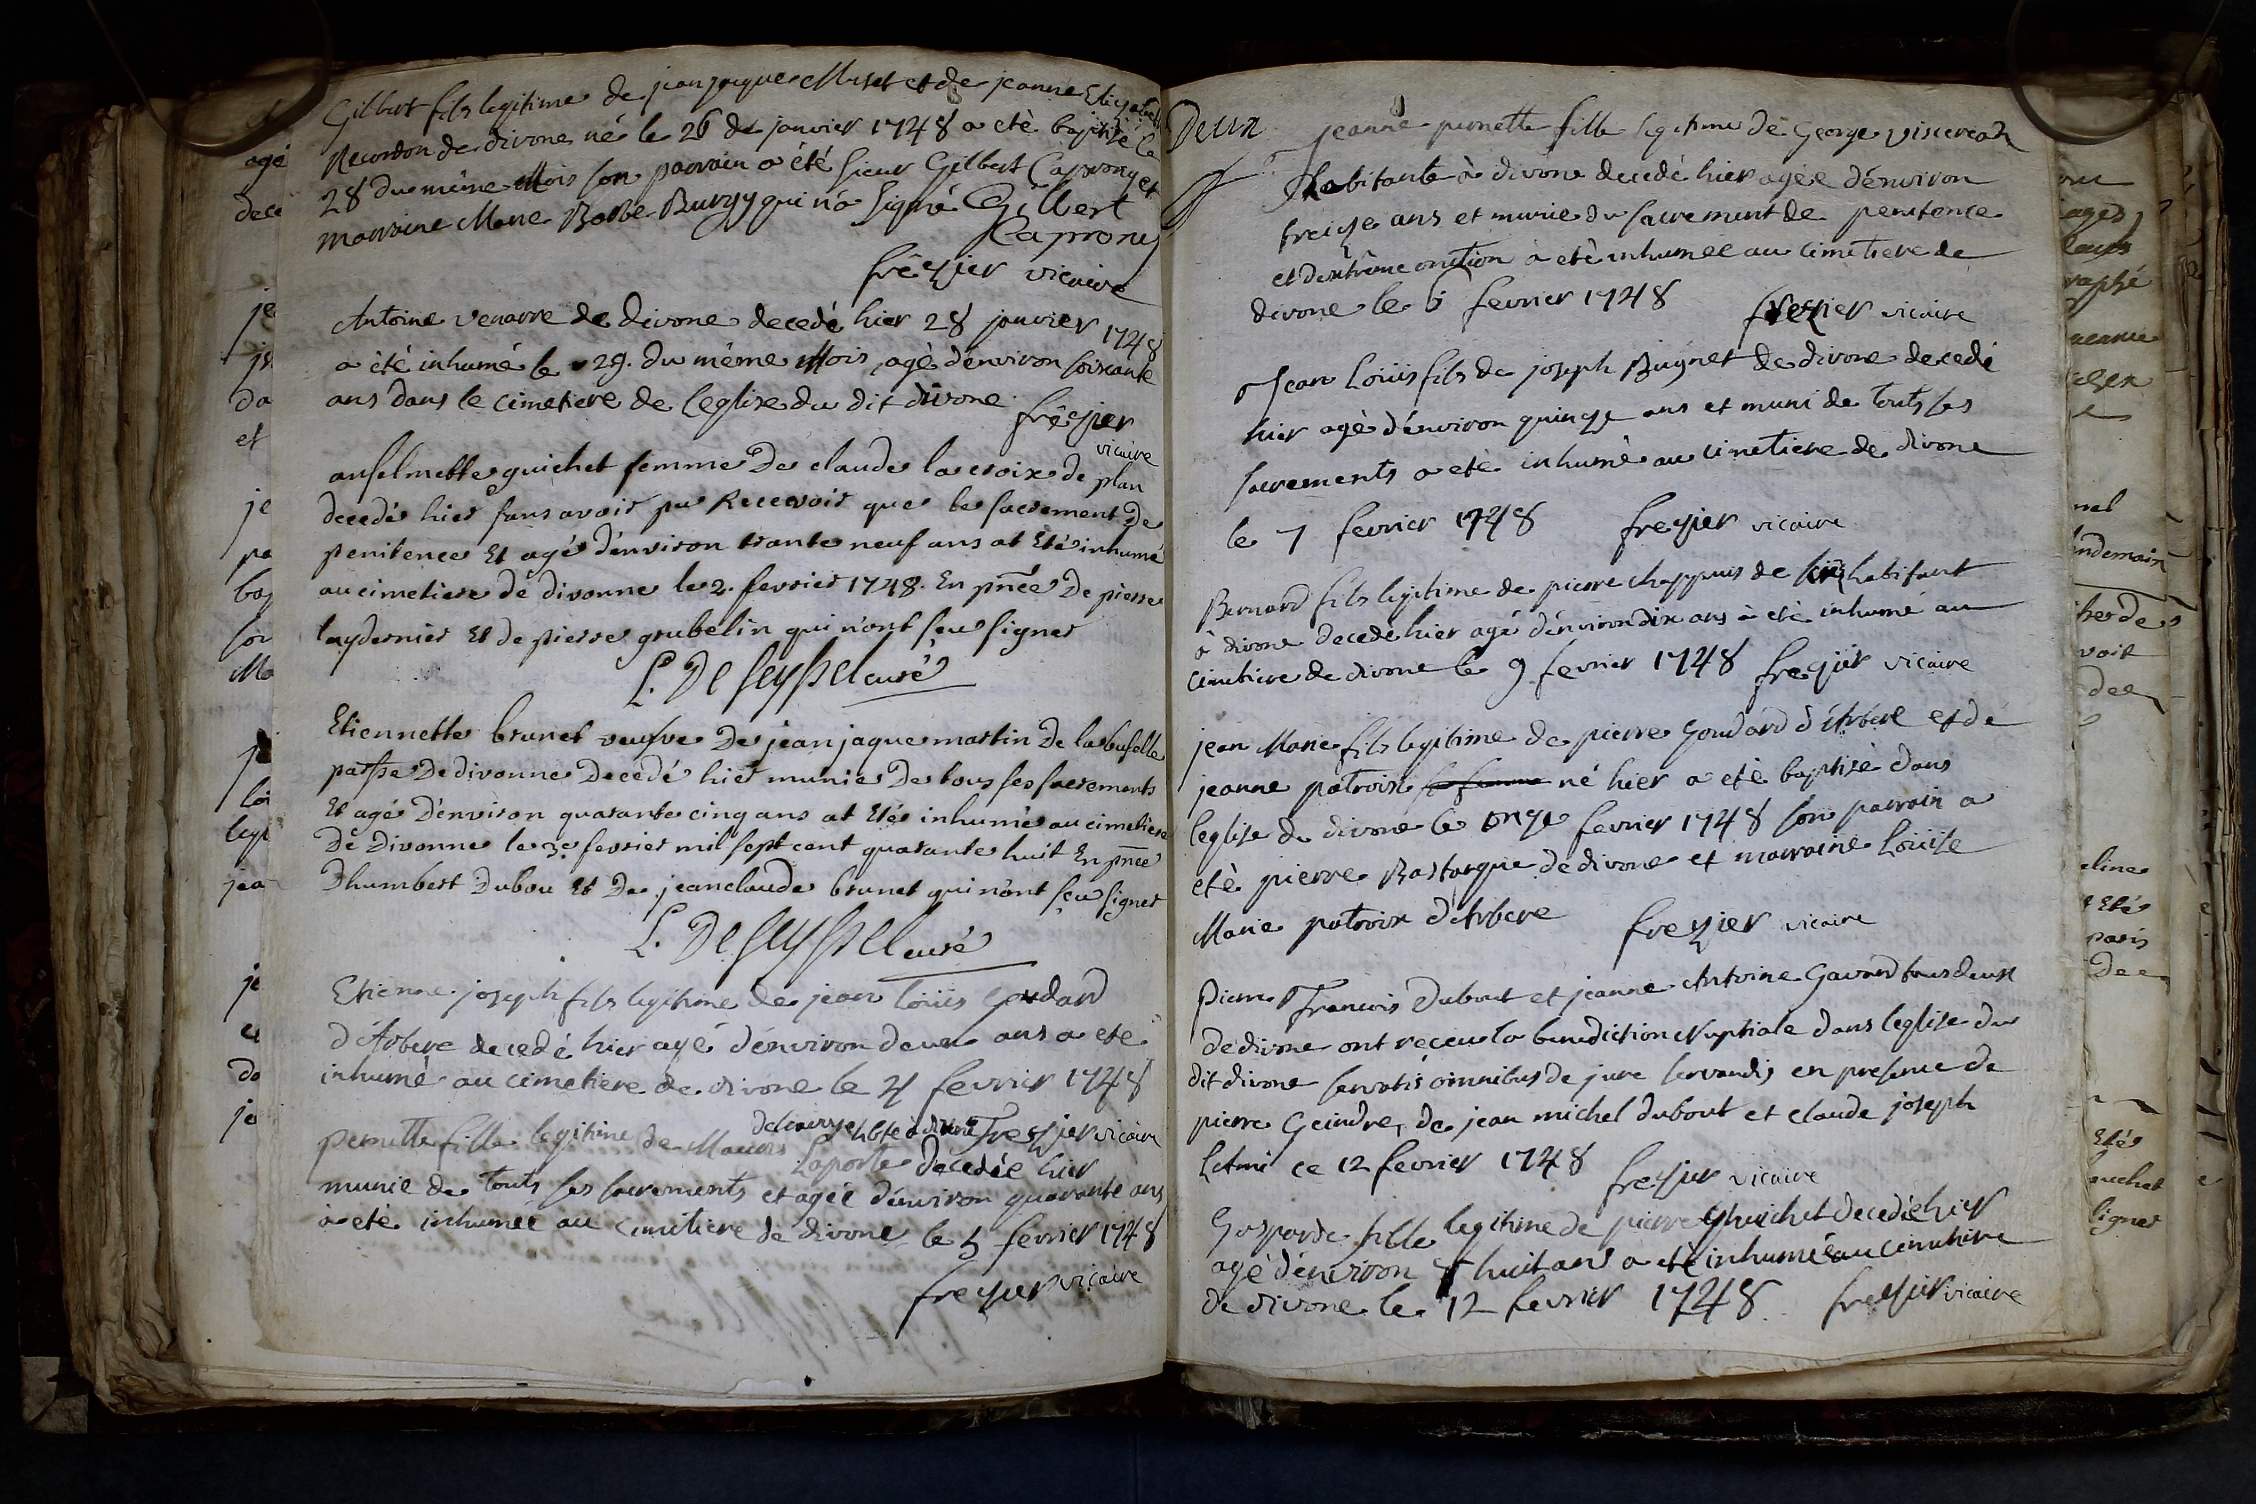 Gilbert fils legitime de jean jaques Muset et de jeanne Elizabeth
Recordon de divone né le 26 de janvier 1748 a eté baptisé le
28 du même Mois son parrain a été sieur Gilbert Caprony et
marraine Marie Barbe Burgy qui n'a signé Gilbert
Caprony
frezier vicaire
Antoine venarre de divone decedé hier 28 janvier 1748
a été inhumé le 29. du même Mois, agé d'environ soixante
ans dans le cimetiere de l'eglise du dit divone
frezier
vicaire
anselmette guichet femme De claude lacroix de plan
decedé hier sans avoir pu Recevoir que le sacrement De
penitence Et agé d'environ trante neuf ans at Eté inhumé
au cimetiere de divonne le 2. fevrier 1748. En pnce De pierre
taydernier Et de pierre grubelin qui n'ont sçeu signer
L. De seyssel curé
Etiennette brunet veufve De jean jaque martin De la
passe De divonne Decedé hier munie De tous ses sacrements
Et agé D'environ quarante cinq ans at Eté inhumé au cimetiere
De Divonne le 3e fevrier mil sept cent quarante huit En pnce
Dhumbert Dubou Et De jeanclaude brunet qui n'ont sçu signer
L. De seyssel curé
Etienne joseph fils legitime de jean loüis Goudard
d'Arbere decedé hier agé d'environ deux ans a eté
inhumé au cimetiere de divone le 4 fevrier 1748
habte à divone frezier vicaire
pernette fille legitime de Laporte decedée hier
munie de touts ses sacrements et agée d'environ quarante ans
a eté inhumée au cimetiere de divone le 5 fevrier 1748
frezier vicaire
Deux
jeanne pernette fille legitime de George
habitante à divone decedé hier agée d'environ
treize ans et munie du sacrement de penitence
et d'extrême onction a eté inhumée au cimetiere de
divone le 6 fevrier 1748 frezier vicaire
Jean Loüis fils de joseph Bugnet de divone decedé
hier agé d'environ quinze ans et muni de touts ses
sacrements a eté inhumé au cimetiere de divone
le 7 fevrier 1748 frezier vicaire
Bernard fils legitime de pierre chappuis de habitant
à divone decedé hier agé d'environ dix ans a eté inhumé au
cimetiere de divone le 9 fevrier 1748 frezier vicaire
jean Marie fils legitime de pierre Goudard d'Arbere et de
jeanne patroix sa femme né hier a eté baptisé dans
l'eglise de divone le onze fevrier 1748 son parrain a
eté pierre Bastarque de divone et marraine Loüise
Marie patroix d'Arbere frezier vicaire
Pierre François Dubout et jeanne Antoine Gavard tous deux
de divone ont reçeu la benediction Nuptiale dans l'eglise du
dit divone servatis omnibus de jure servandis en presence de
pierre Geindre, de jean michel dubout et claude joseph
L'Ami ce 12 fevrier 1748 frezier vicaire
Gasparde fille legitime de pierre Ghuichet decedée hier
agé d'environ huit ans a eté inhumée au cimetiere
de divone le 12 fevrier 1748 frezier vicaire